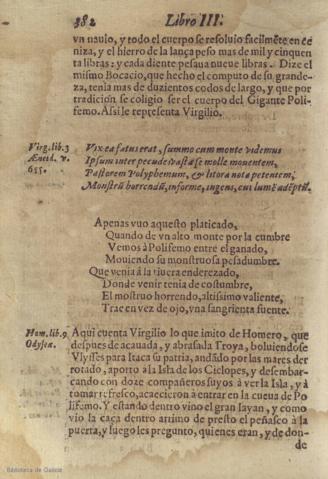 382 Libro III.
vn nauio, y todo el cuerpo se resoluio facilmẽte en ce
niza, y el hierro de la lança peso mas de mil y cinquen
ta libras: y cada diente pesaua nueue libras. Dize el
mismo Bocacio, que hecho el computo de su grande-
za, tenia mas de duzientos codos de largo, y que por
tradicion se coligio ser el cuerpo del Gigante Poli-
femo. Assi le representa Virgilio.
Virg. lib. 3
Æneid. v.
655.
Vix ea fatus erat, summo cum monte videmus
Ipsum inter pecudes vasta se mole mouentem,
Pastorem Polyphemum, & litora nota petentem,
Monstrũ horrendũ, informe, ingens, cui lumẽ adẽptũ.
Apenas vuo aquesto platicado,
Quando de vn alto monte por la cumbre
Vemos à Polifemo entre el ganado,
Mouiendo su monstruosa pesadumbre.
Que venia à la riuera enderezado,
Donde venir tenia de costumbre,
El mostruo horrendo, altissimo valiente,
Trae en vez de ojo, vna sangrienta fuente.
Hom. lib. 9
Odyssea.
Aqui cuenta Virgilio lo que imito de Homero, que
despues de acauada, y abrasada Troya, boluiendose
Vlysses para Itaca su patria, andãdo por las mares der
rotado, aporto a la Isla de los Ciclopes, y desembar-
cando con doze compañeros suyos à ver la Isla, y à
tomar refresco, acaecieron a entrar en la cueua de Po
lifemo. Y estando dentro vino el gran Iayan, y como
vio la caça dentro arrimo de presto el peñasco à la
puerta, y luego les pregunto, quienes eran, y de don-
de
Biblioteca de Galicia